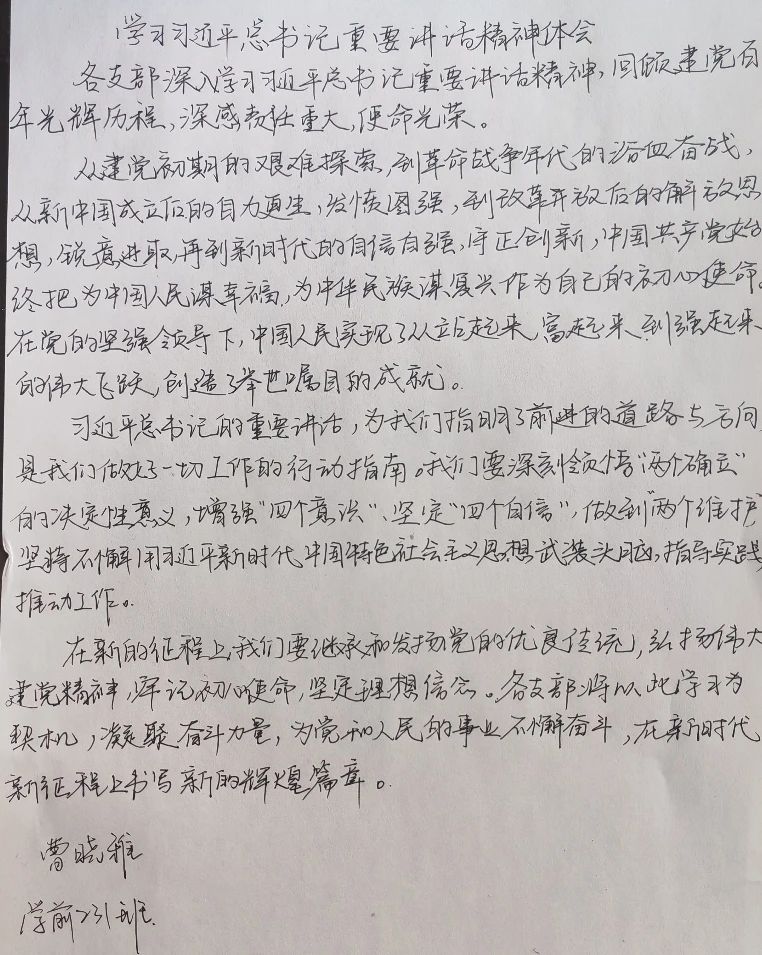 学习习近平总书记重要讲话精神体会
各支部深入学习习近平总书记重要讲话精神，回顾建党百
年光辉历程，深感责任重大，使命光荣。
从建党初期的艰难探索，到革命战争年代的浴血奋战，
从新中国成立后的自力更生，发愤图强，到改革开放后的解放思
想，锐意进取，再到新时代的自信自强，守正创新，中国共产党始
终把为中国人民谋幸福，为中华民族谋复兴作为自己的初心使命。
在党的坚强领导下，中国人民实现了从立占起来，富起来，到强起来
的伟大飞跃，创造了举世瞩目的成就。
习近平总书记的重要讲话，为我们指明了前进的道路与方向
是我们做好一切工作的行动指南。我们要深刻领悟“两个确立”
的决定性意义，增强“四个意识”、坚定“四个自信”，做到“两个维护”
坚持不懈用习近平新时代中国特色社会主义思想武装头脑，指导实践
推动工作。
在新的征程上，我们要继承和发扬党的优良传统，弘扬伟大
建党精神，牢记初心使命，坚定理想信念。各支部将以此学习为
契机，凝聚奋斗力量，为党和人民的事业不懈奋斗，在新时代
新征程上书写新的辉煌篇章。
曹晓雅
学前231班